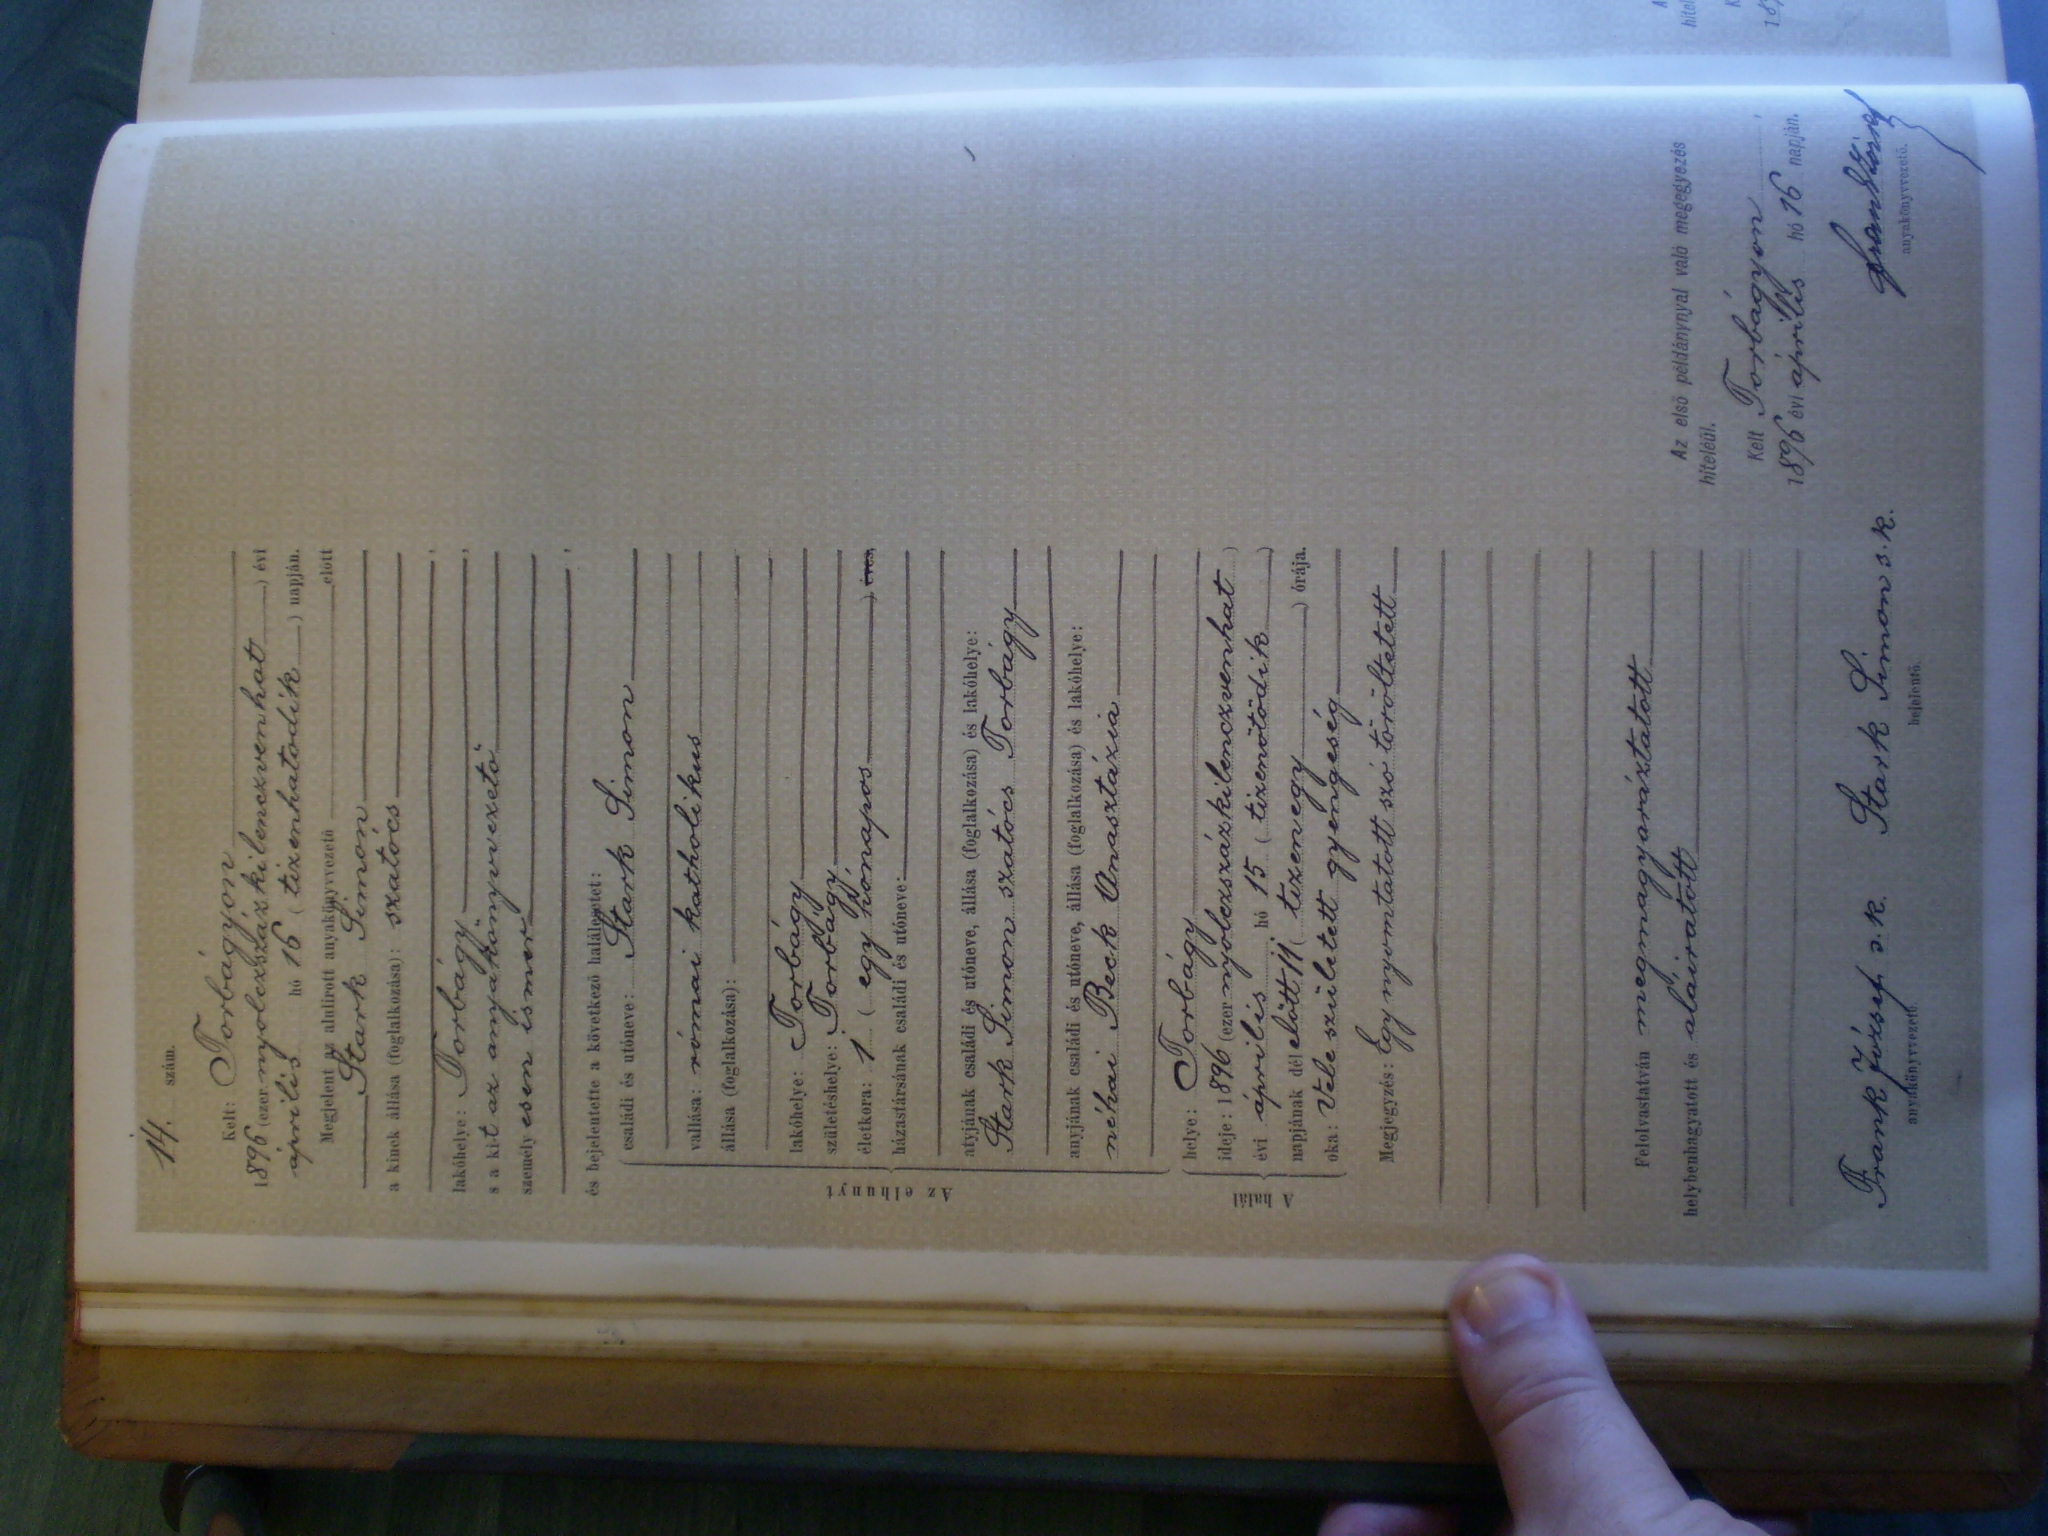 14. szám.
Kelt: Torbágyon
1896 (ezernyolczszázkilenczvenhat) évi
április hó 16 (tizenhatodik) napján.
Megjelent az alulirott anyakönyvvezető előtt
Stark Simon
a kinek állása (foglalkozása): szatócs
lakóhelye: Torbágy
s a kit az anyakönyvvezető
személyesen ismer
és bejelentette a következő halálesetet:
Az elhunyt
családi és utóneve: Stark Simon
vallása: római katholikus
állása (foglalkozása):
lakóhelye: Torbágy
születéshelye: Torbágy
életkora: 1 (egy hónapos) éves,
házastársának családi és utóneve:
atyjának családi és utóneve, állása (foglalkozása) és lakóhelye:
Stark Simon szatócs Torbágy
anyjának családi és utóneve, állása (foglalkozása) és lakóhelye:
néhai Beck Anasztázia
A halál
helye: Torbágy
ideje: 1896 (ezernyolczszázkilenczvenhat)
évi április hó 15 (tizenötödik)
napjának dél előtt 11 (tizenegy) órája.
oka: Vele született gyengeség
Megjegyzés: Egy nyomtatott szó töröltetett
Felolvastatván megmagyaráztatott
helybenhagyatott és aláiratott
Frank József s. k. Stark Simon s. k.
anyakönyvvezető bejelentő.
Az első példánynyal való megegyezés
hiteléül.
Kelt Torbágyon,
1896 évi április hó 16 napján.
Frank József
anyakönyvvezető.